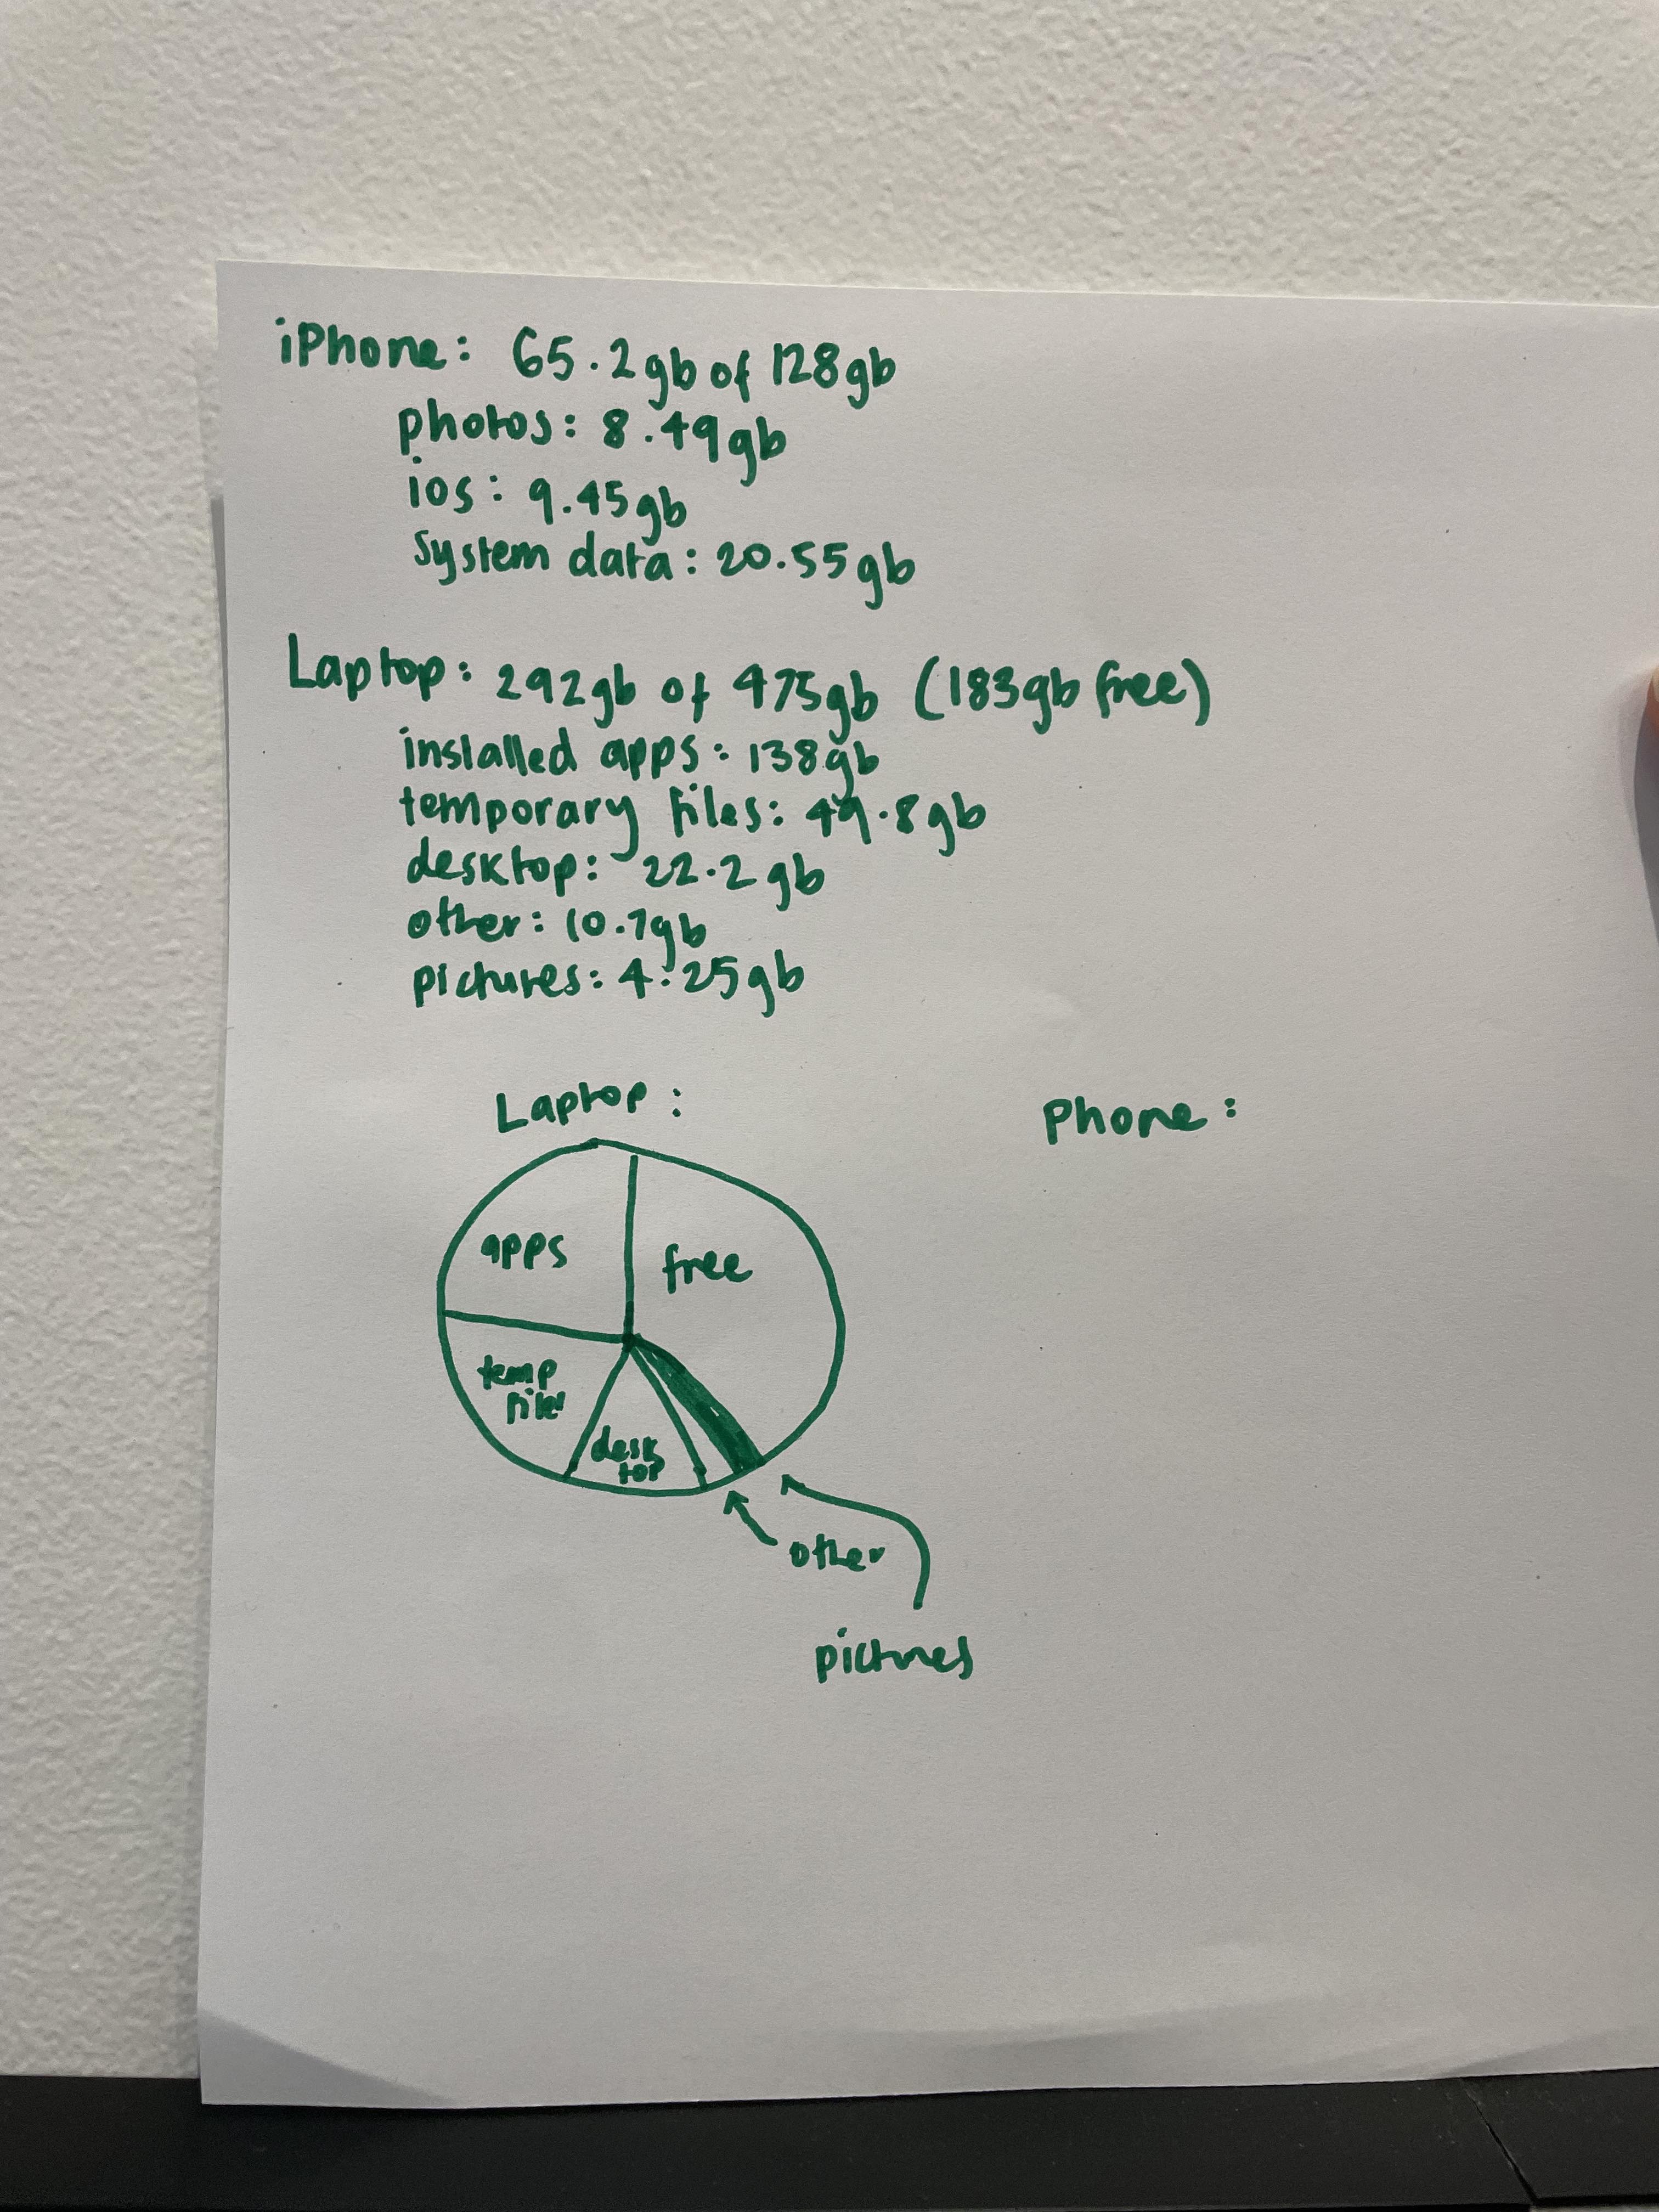 iPhone: 65.2gb of 128gb
photos: 8.49gb
ios: 9.45gb
System data: 20.55gb
Laptop: 292gb of 475gb (183gb free)
installed apps: 138gb
temporary files: 49.8gb
desktop: 22.2gb
other: 10.7gb
pictures: 4.25gb
Laptop:
Phone:
apps
free
temp
files
desk
top
other
pictures